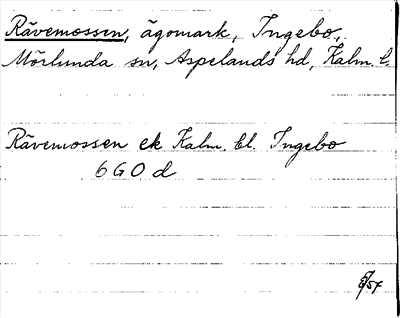 Rävemossen, ägomark, Ingebo,
Mörlunda sn, Aspelands hd, Kalm. l.
Rävemossen ek Kalm. bl. Ingebo
6 G 0 d